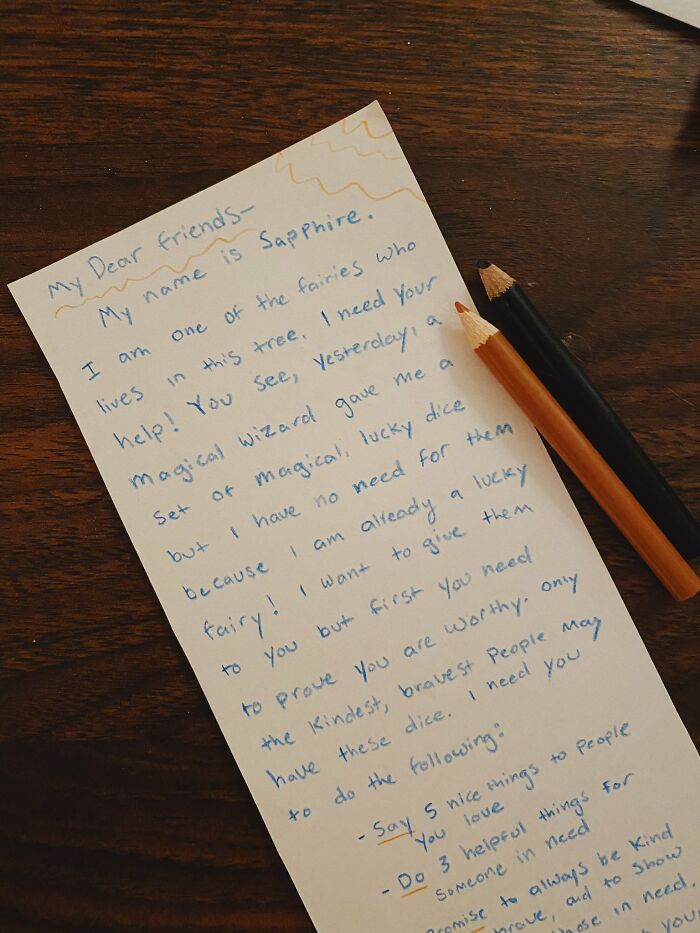 My Dear friends-
My name is Sapphire.
I am one of the fairies who
lives in this tree. I need your
help! You see, yesterday, a
magical wizard gave me a
set of magical, lucky dice
but I have no need for them
because I am already a lucky
fairy! I want to give them
to you but first you need
to prove you are worthy. Only
the kindest, bravest people may
have these dice. I need you
to do the following:
- Say 5 nice things to people
you love
- Do 3 helpful things for
someone in need
Promise to always be kind
brave, and to show
those in need.
your